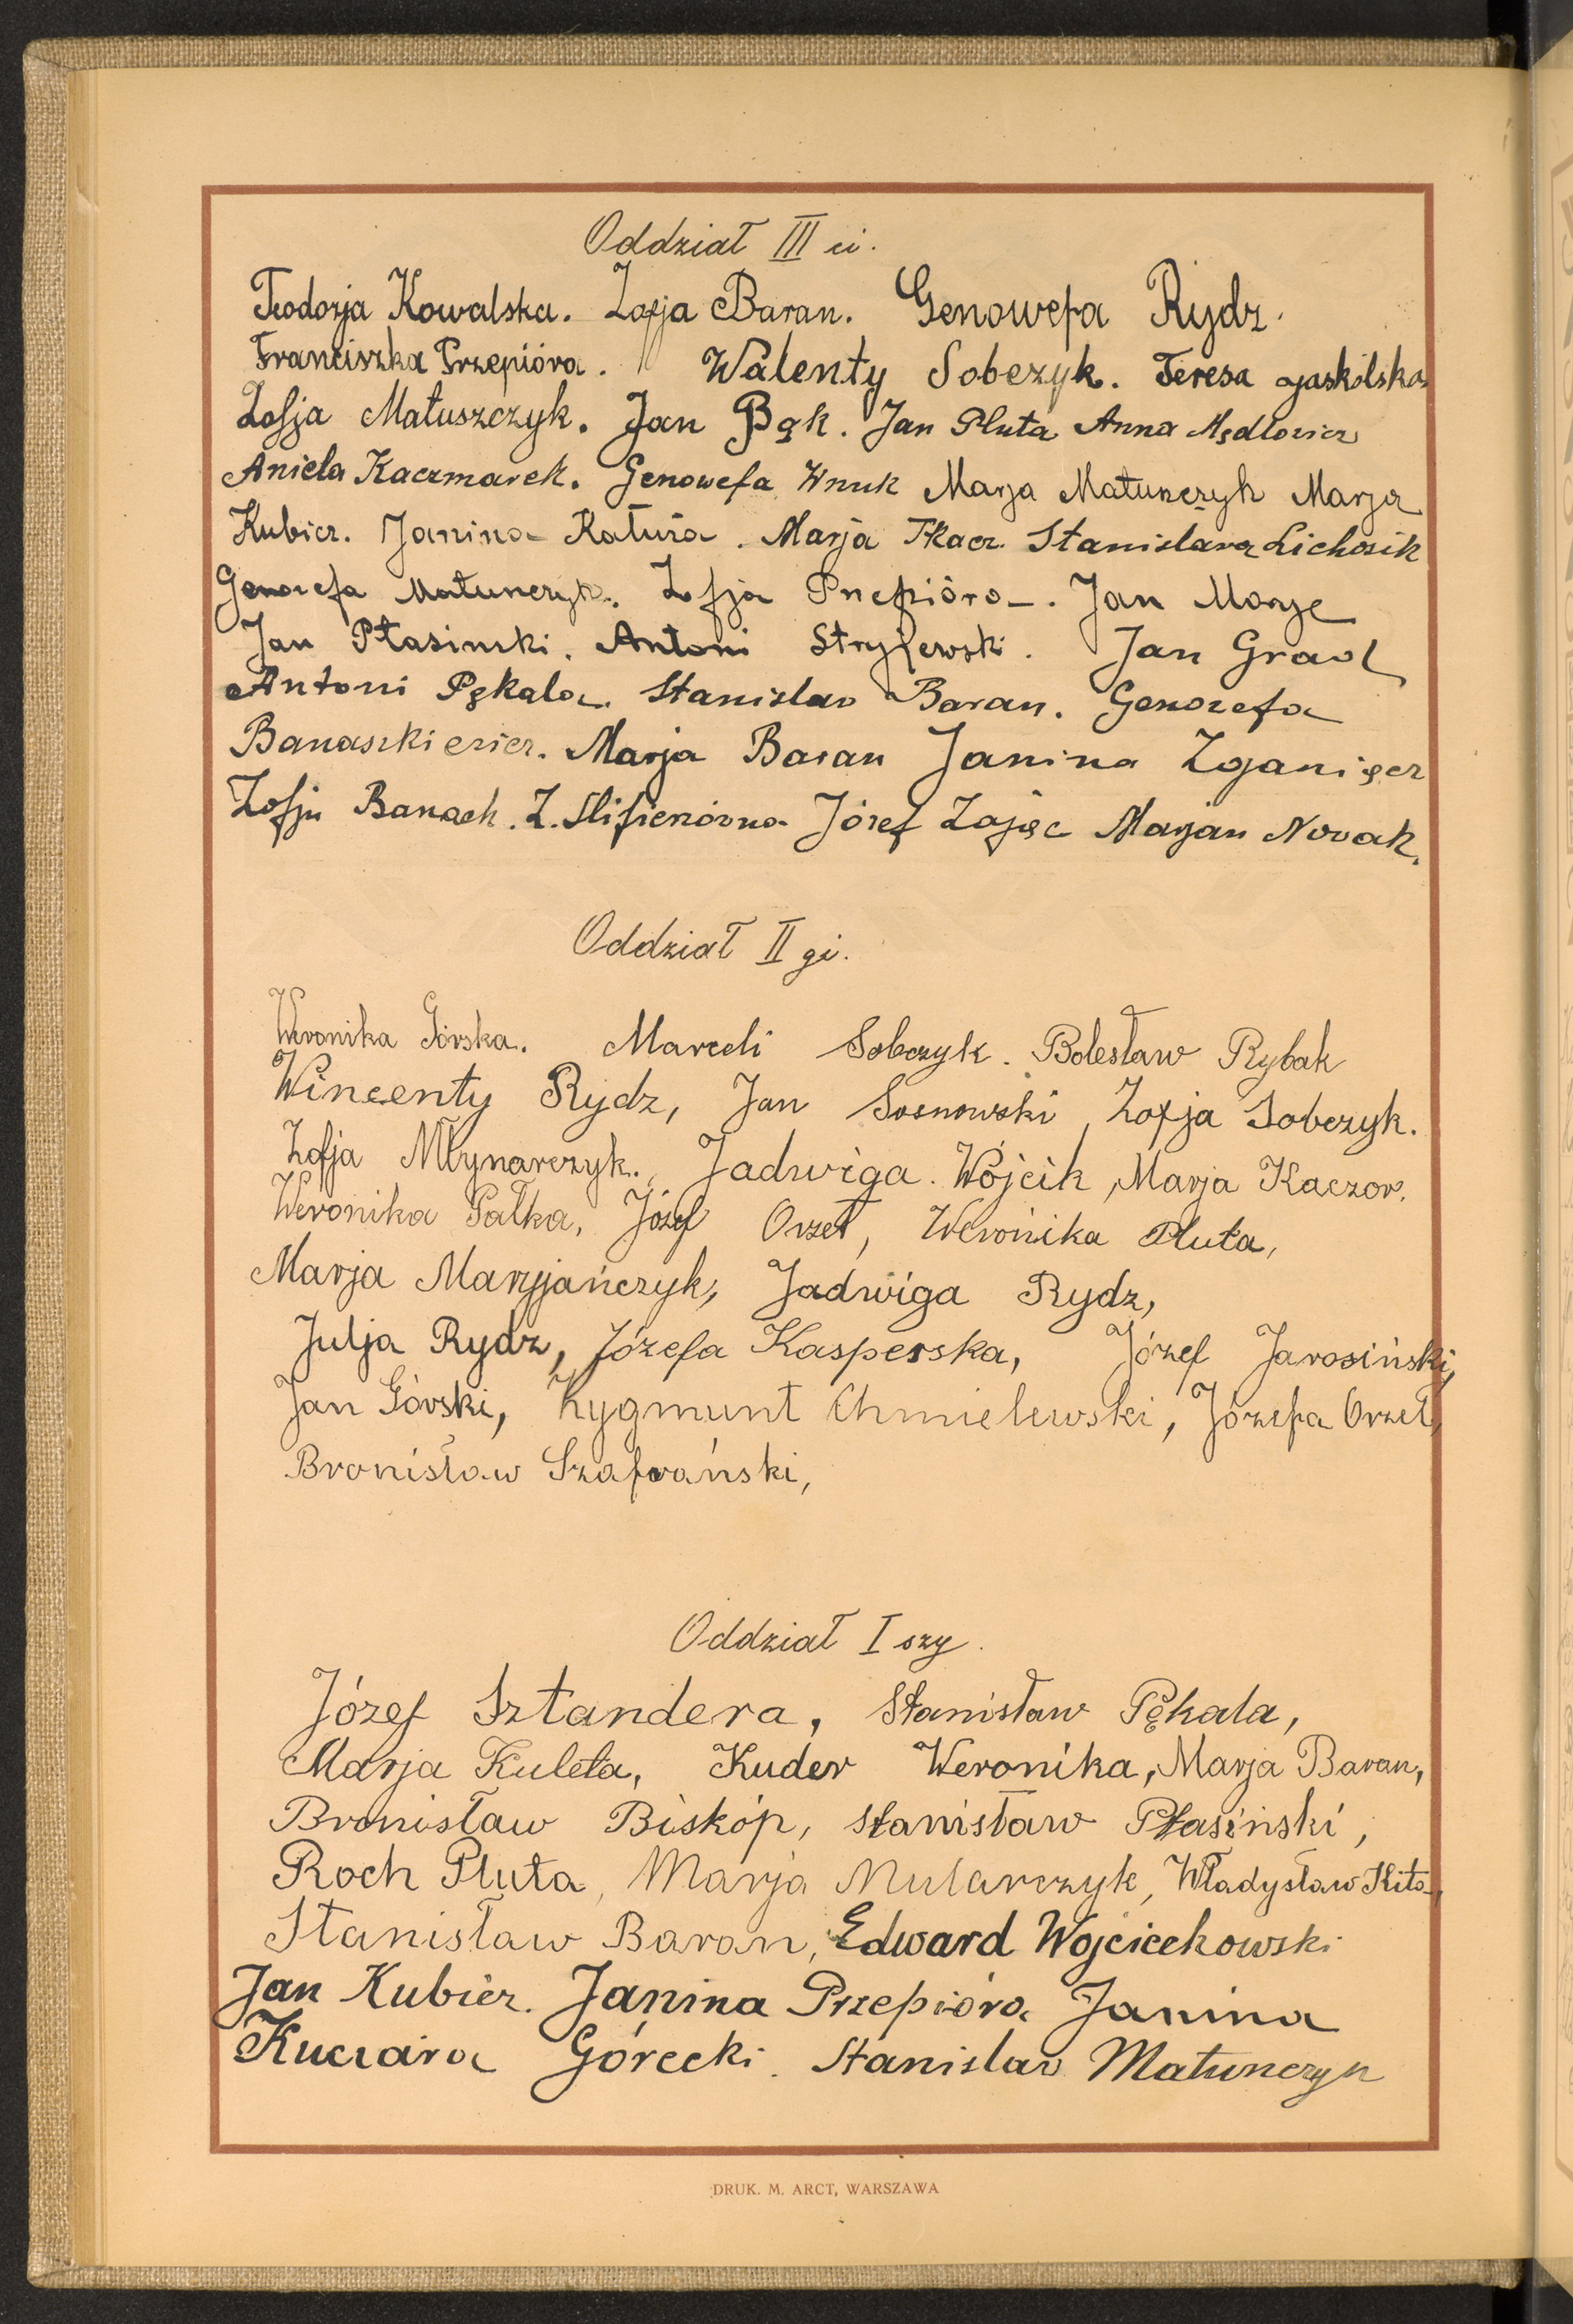 Oddział III ci.
Teodozja Kowalska. Zofja Baran. Genowefa Rydz.
Franciszka Przepióra. Walenty Sobczyk. Teresa Jaskólska
Zofja Matuszczyk. Jan Bąk. Jan Pluta Anna Mędłowicz
Aniela Kaczmarek. Genowefa Wnuk Marja Matunczyk Marja
Kubicz. Janina Katuza. Marja Tkacz. Stanisława Lichosik
Genowefa Matunczyk. Zofja Pnepióro. Jan
Jan Ptasinski. Antoni Stryjewski. Jan Grad
Antoni Pękala. Stanislaw Baran. Genowefa
Banaszkiewicz. Marja Baran Janina Zganiacz
Zofja Banach. Z. Slifienówna Józef Zając Marjan Nowak.
Oddział II gi.
Weronika Górska. Marceli Sobczyk. Bolesław Rybak
Wincenty Rydz, Jan Sosnowski, Zofja Sobczyk.
Zofja Młynarczyk. Jadwiga Wójcik, Marja Kaczor.
Weronika Pałka, Józef Orzeł, Weronika Pluta,
Marja Maryjańczyk, Jadwiga Rydz,
Julja Rydz, Józefa Kasperska, Józef Jarosiński,
Jan Górski, Zygmunt Chmielewski, Józefa Orzeł,
Bronisław Szafrański,
Oddział I szy.
Józef Sztandera, Stanisław Pękala,
Marja Kuleta, Kuder Weronika, Marja Baran,
Bronisław Biskóp, Stanisław Ptasiński,
Roch Pluta, Marja Mularczyk, Władysław Kita,
Stanisław Baran, Edward Wojciechowski
Jan Kubicz. Janina Przepióra Janina
Kuczara Górecki. Stanislaw Matunczyk
DRUK. M. ARCT, WARSZAWA